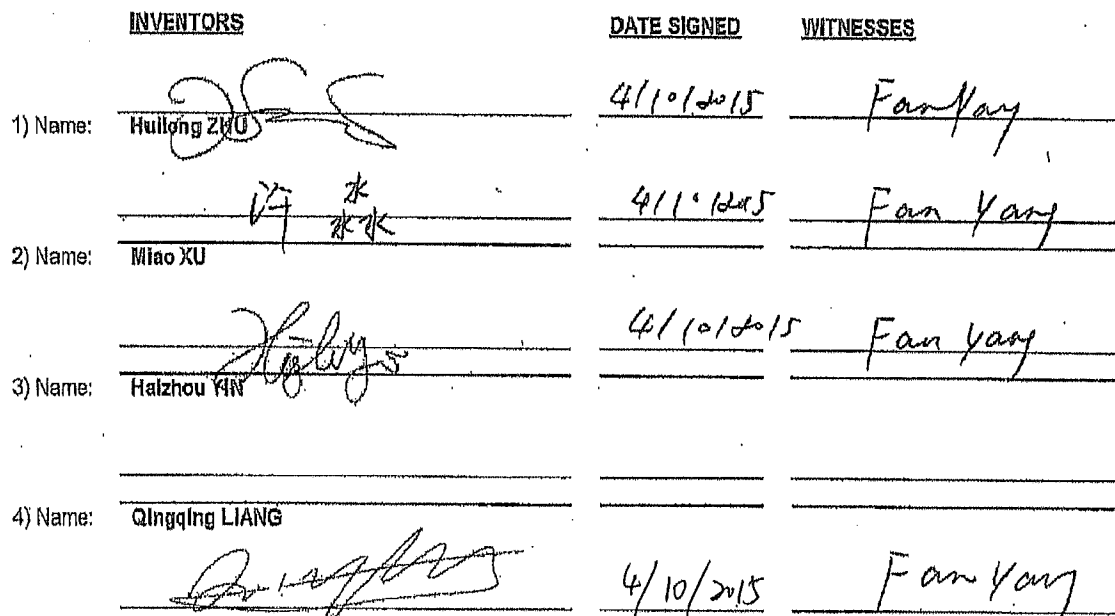 INVENTORS DATE SIGNED WITNESSES
4/10/2015 Fan Yang
1) Name: Huilong ZHU
许淼 4/10/2015 Fan Yang
2) Name: Miao XU
4/10/2015 Fan Yang
3) Name: Haizhou YIN
4) Name: Qingqing LIANG
4/10/2015 Fan Yang